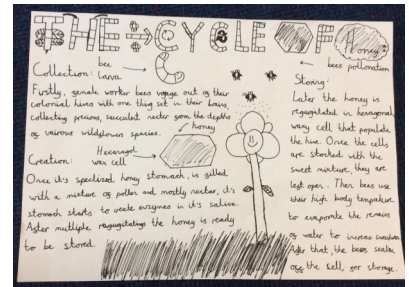 THE CYCLE OF Honey:
bee
larva
bees pollonation
Collection:
Firstly, female worker bees voyage out of their
colonial hives with one thing set in their brains,
collecting precious, succulent necter from the depths
of vairous wildflower species.
honey
Hexanagol
wax cell
Creation:
Once it's specilized honey stomach, is filled
with a mixture of pollen and mostly nectar, it's
stomach starts to create enzymes in it's saliva.
After multiple regurgitatings the honey is ready
to be stored.
Storing:
Later the honey is
regurgitated in hexagonal
waxy cell that populate
the hive. Once the cells
are stocked with the
sweet mixture, they are
left open. Then bees use
their high body tempature
to evaporate the remains
of water to increas
After that, the bees sealen
off the cell for storage.